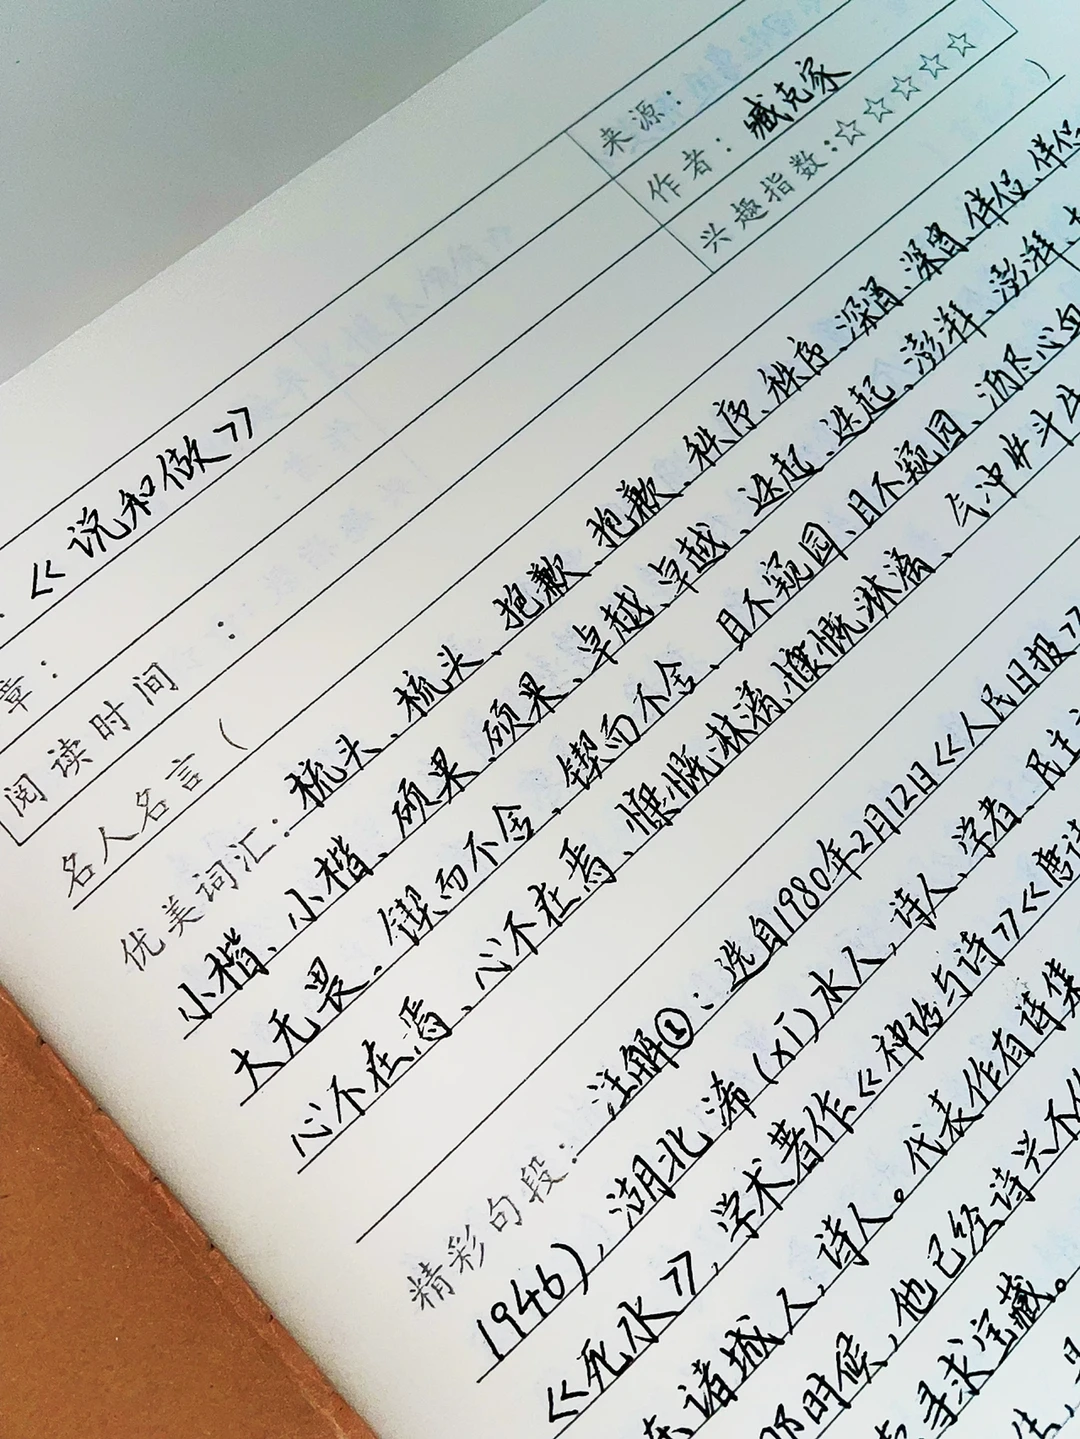 来源：
《说和做》
作者：臧克家
章：
兴趣指数：☆☆☆☆☆
阅读时间：
名人名言（ ）
优美词汇：梳头、梳头、抱歉、抱歉、秩序、秩序、深宵、深宵、伴侣、伴侣
小楷、小楷、硕果、硕果、卓越、卓越、迭起、迭起、澎湃、澎湃、
大无畏、锲而不舍、锲而不舍、目不窥园、目不窥园、沥尽心血
心不在焉、心不在焉、慷慨淋漓、慷慨淋漓、气冲斗牛
精彩句段：注解①：选自1980年2月12日《人民日报》
1946），湖北浠（xī）水人，诗人、学者、民主
《死水》，学术著作《神话与诗》《唐诗
诸城人，诗人。代表作有诗集
时候，他已经诗兴不作
寻求宝藏。